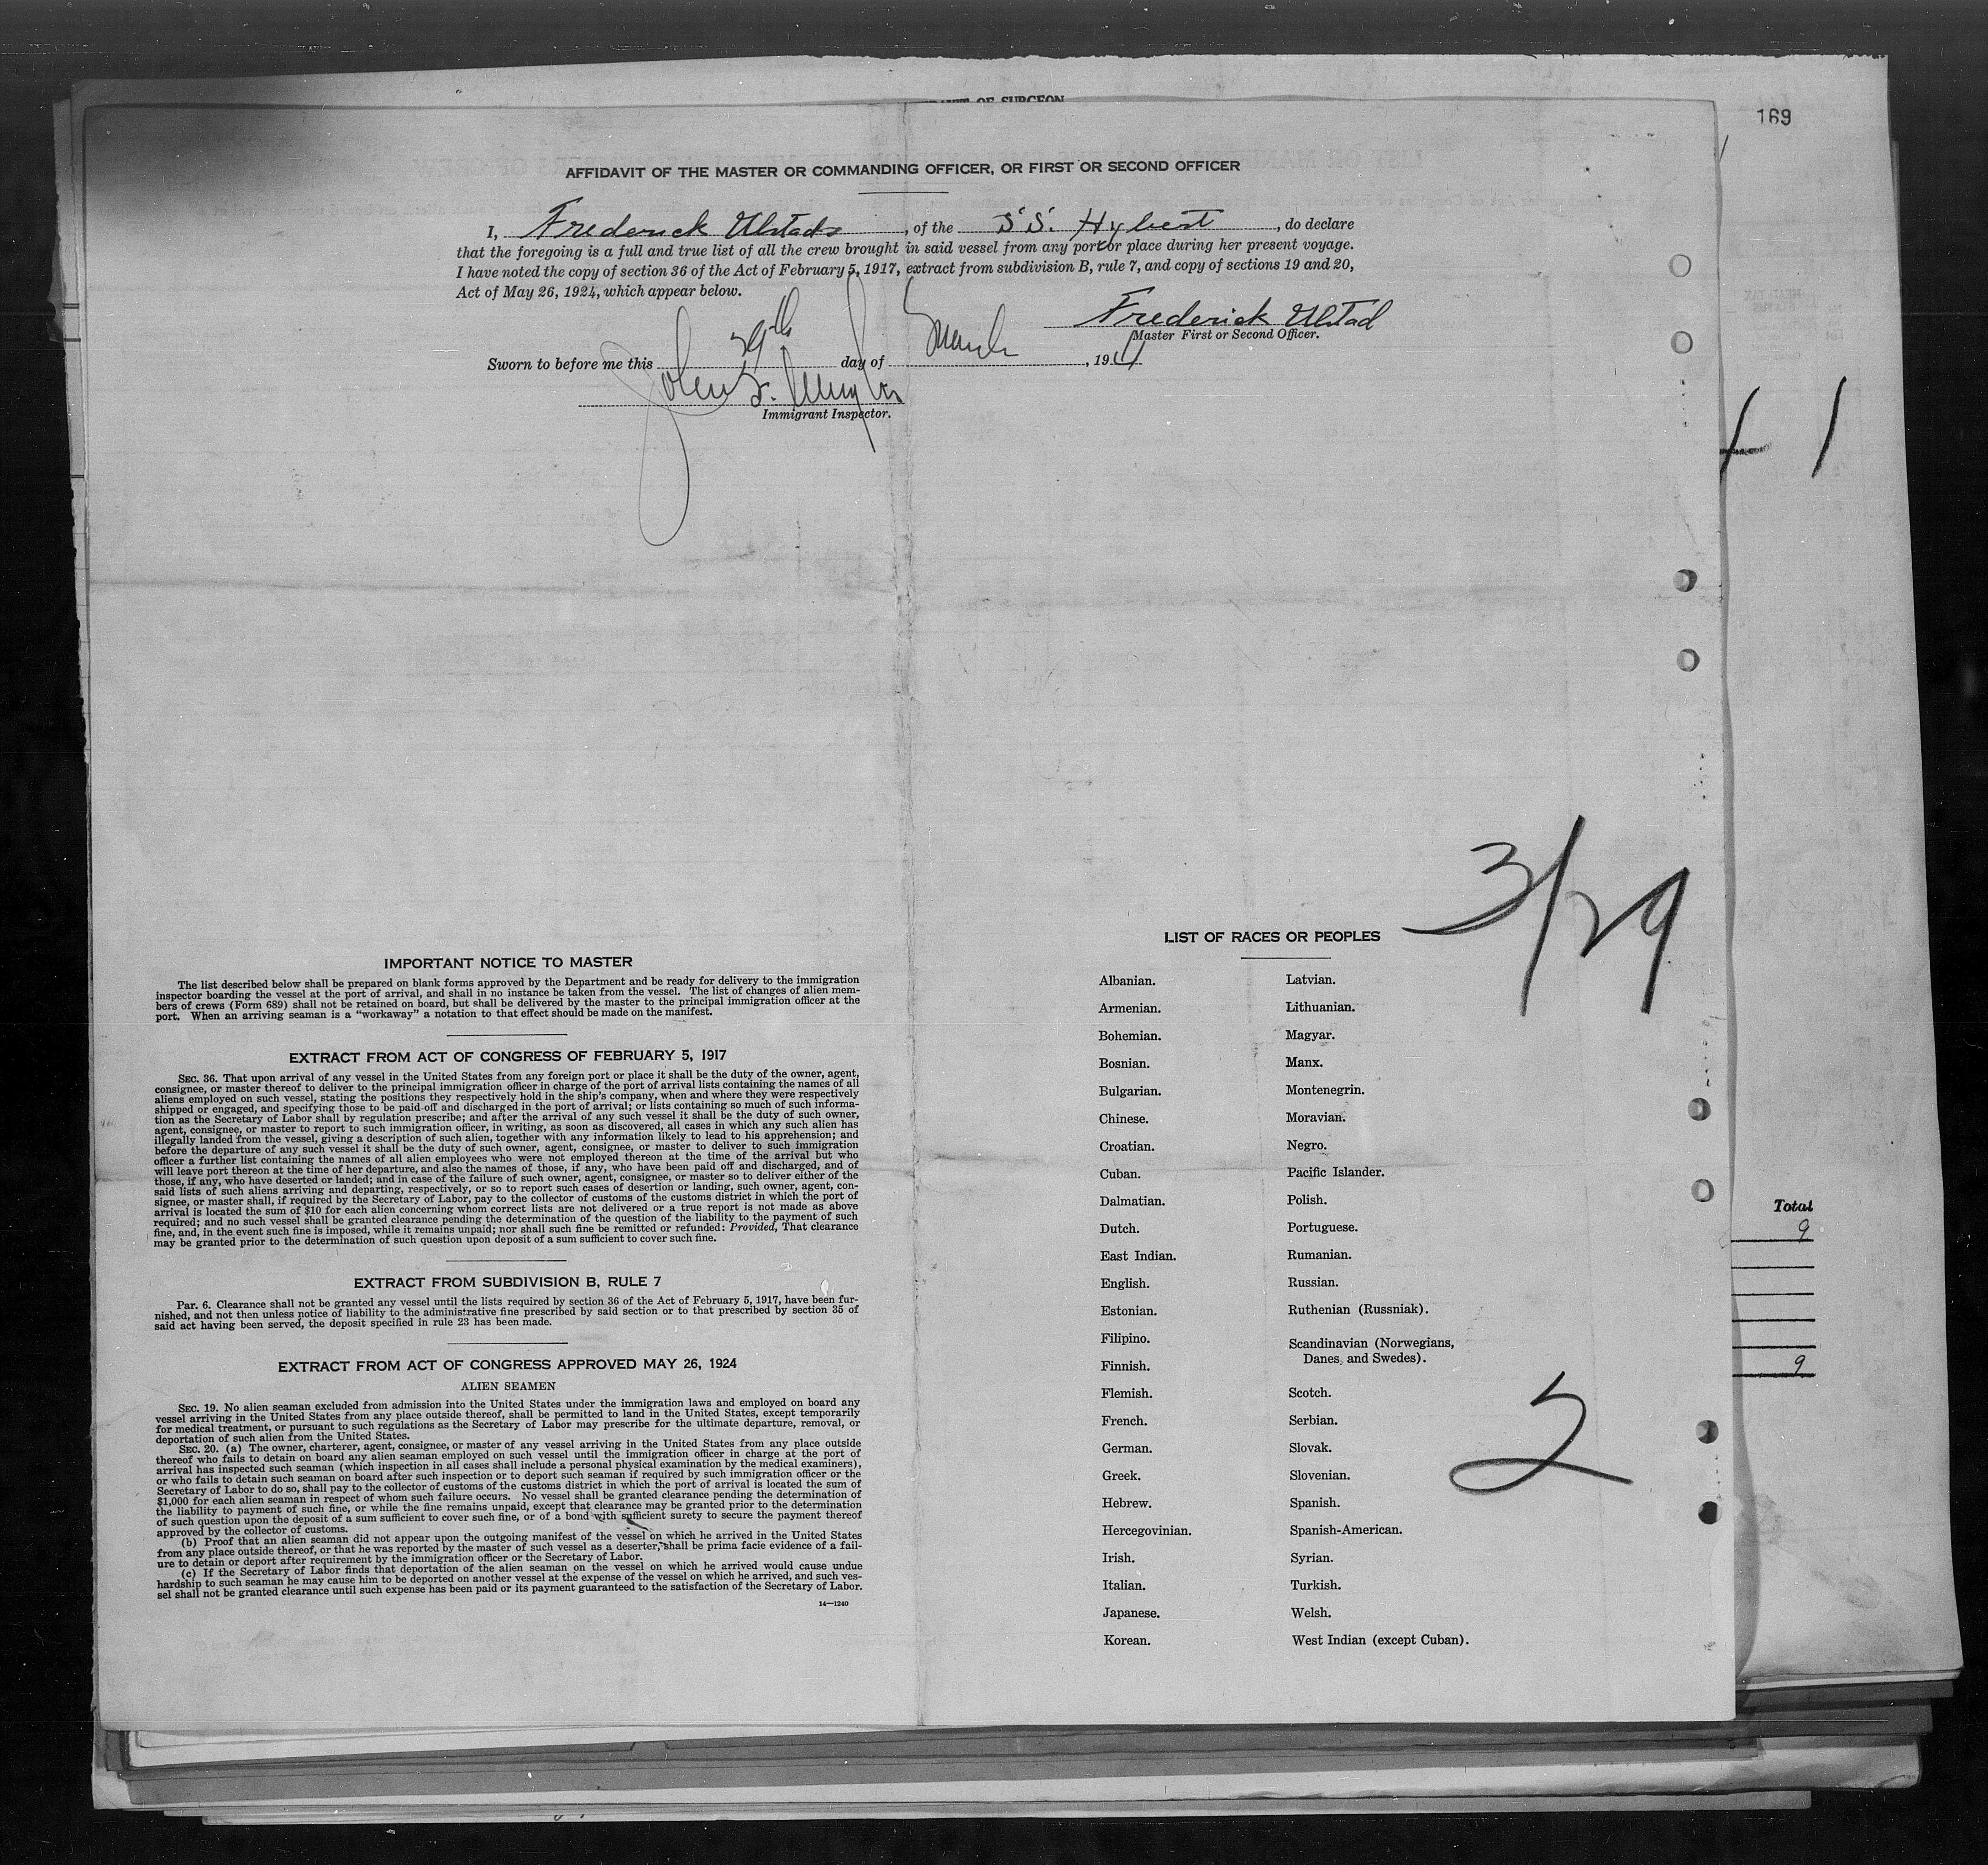 OF SURGEON
169
AFFIDAVIT OF THE MASTER OR COMMANDING OFFICER, OR FIRST OR SECOND OFFICER
I, Frederick Ulstad, of the S.S. Hybert, do declare
that the foregoing is a full and true list of all the crew brought in said vessel from any port or place during her present voyage.
I have noted the copy of section 36 of the Act of February 5, 1917, extract from subdivision B, rule 7, and copy of sections 19 and 20,
Act of May 26, 1924, which appear below.
Frederick Ulstad
Master First or Second Officer.
Sworn to before me this 29th day of March, 19
John
Immigrant Inspector.
1
3/29
IMPORTANT NOTICE TO MASTER
The list described below shall be prepared on blank forms approved by the Department and be ready for delivery to the immigration
inspector boarding the vessel at the port of arrival, and shall in no instance be taken from the vessel. The list of changes of alien mem-
bers of crews (Form 689) shall not be retained on board, but shall be delivered by the master to the principal immigration officer at the
port. When an arriving seaman is a "workaway" a notation to that effect should be made on the manifest.
EXTRACT FROM ACT OF CONGRESS OF FEBRUARY 5, 1917
SEC. 36. That upon arrival of any vessel in the United States from any foreign port or place it shall be the duty of the owner, agent,
consignee, or master thereof to deliver to the principal immigration officer in charge of the port of arrival lists containing the names of all
aliens employed on such vessel, stating the positions they respectively hold in the ship's company, when and where they were respectively
shipped or engaged, and specifying those to be paid off and discharged in the port of arrival; or lists containing so much of such informa-
tion as the Secretary of Labor shall by regulation prescribe; and after the arrival of any such vessel it shall be the duty of such owner,
agent, consignee, or master to report to such immigration officer, in writing, as soon as discovered, all cases in which any such alien has
illegally landed from the vessel, giving a description of such alien, together with any information likely to lead to his apprehension; and
before the departure of any such vessel it shall be the duty of such owner, agent, consignee, or master to deliver to such immigration
officer a further list containing the names of all alien employees who were not employed thereon at the time of the arrival but who
will leave port thereon at the time of her departure, and also the names of those, if any, who have been paid off and discharged, and of
those, if any, who have deserted or landed; and in case of the failure of such owner, agent, consignee, or master so to deliver either of the
said lists of such aliens arriving and departing, respectively, or so to report such cases of desertion or landing, such owner, agent, con-
signee, or master shall, if required by the Secretary of Labor, pay to the collector of customs of the customs district in which the port of
arrival is located the sum of $10 for each alien concerning whom correct lists are not delivered or a true report is not made as above
required; and no such vessel shall be granted clearance pending the determination of the question of the liability to the payment of such
fine, and, in the event such fine is imposed, while it remains unpaid; nor shall such fine be remitted or refunded: Provided, That clearance
may be granted prior to the determination of such question upon deposit of a sum sufficient to cover such fine.
EXTRACT FROM SUBDIVISION B, RULE 7
Par. 6. Clearance shall not be granted any vessel until the lists required by section 36 of the Act of February 5, 1917, have been fur-
nished, and not then unless notice of liability to the administrative fine prescribed by said section or to that prescribed by section 35 of
said act having been served, the deposit specified in rule 23 has been made.
EXTRACT FROM ACT OF CONGRESS APPROVED MAY 26, 1924
ALIEN SEAMEN
SEC. 19. No alien seaman excluded from admission into the United States under the immigration laws and employed on board any
vessel arriving in the United States from any place outside thereof, shall be permitted to land in the United States, except temporarily
for medical treatment, or pursuant to such regulations as the Secretary of Labor may prescribe for the ultimate departure, removal, or
deportation of such alien from the United States.
SEC. 20. (a) The owner, charterer, agent, consignee, or master of any vessel arriving in the United States from any place outside
thereof who fails to detain on board any alien seaman employed on such vessel until the immigration officer in charge at the port of
arrival has inspected such seaman (which inspection in all cases shall include a personal physical examination by the medical examiners),
or who fails to detain such seaman on board after such inspection or to deport such seaman if required by such immigration officer or the
Secretary of Labor to do so, shall pay to the collector of customs of the customs district in which the port of arrival is located the sum of
$1,000 for each alien seaman in respect of whom such failure occurs. No vessel shall be granted clearance pending the determination of
the liability to payment of such fine, or while the fine remains unpaid, except that clearance may be granted prior to the determination
of such question upon the deposit of a sum sufficient to cover such fine, or of a bond with sufficient surety to secure the payment thereof
approved by the collector of customs.
(b) Proof that an alien seaman did not appear upon the outgoing manifest of the vessel on which he arrived in the United States
from any place outside thereof, or that he was reported by the master of such vessel as a deserter, shall be prima facie evidence of a fail-
ure to detain or deport after requirement by the immigration officer or the Secretary of Labor.
(c) If the Secretary of Labor finds that deportation of the alien seaman on the vessel on which he arrived would cause undue
hardship to such seaman he may cause him to be deported on another vessel at the expense of the vessel on which he arrived, and such ves-
sel shall not be granted clearance until such expense has been paid or its payment guaranteed to the satisfaction of the Secretary of Labor.
14—1240
LIST OF RACES OR PEOPLES
Albanian.
Armenian.
Bohemian.
Bosnian.
Bulgarian.
Chinese.
Croatian.
Cuban.
Dalmatian.
Dutch.
East Indian.
English.
Estonian.
Filipino.
Finnish.
Flemish.
French.
German.
Greek.
Hebrew.
Hercegovinian.
Irish.
Italian.
Japanese.
Korean.
Latvian.
Lithuanian.
Magyar.
Manx.
Montenegrin.
Moravian.
Negro.
Pacific Islander.
Polish.
Portuguese.
Rumanian.
Russian.
Ruthenian (Russniak).
Scandinavian (Norwegians,
Danes, and Swedes).
Scotch.
Serbian.
Slovak.
Slovenian.
Spanish.
Spanish-American.
Syrian.
Turkish.
Welsh.
West Indian (except Cuban).
2
Total
9
9